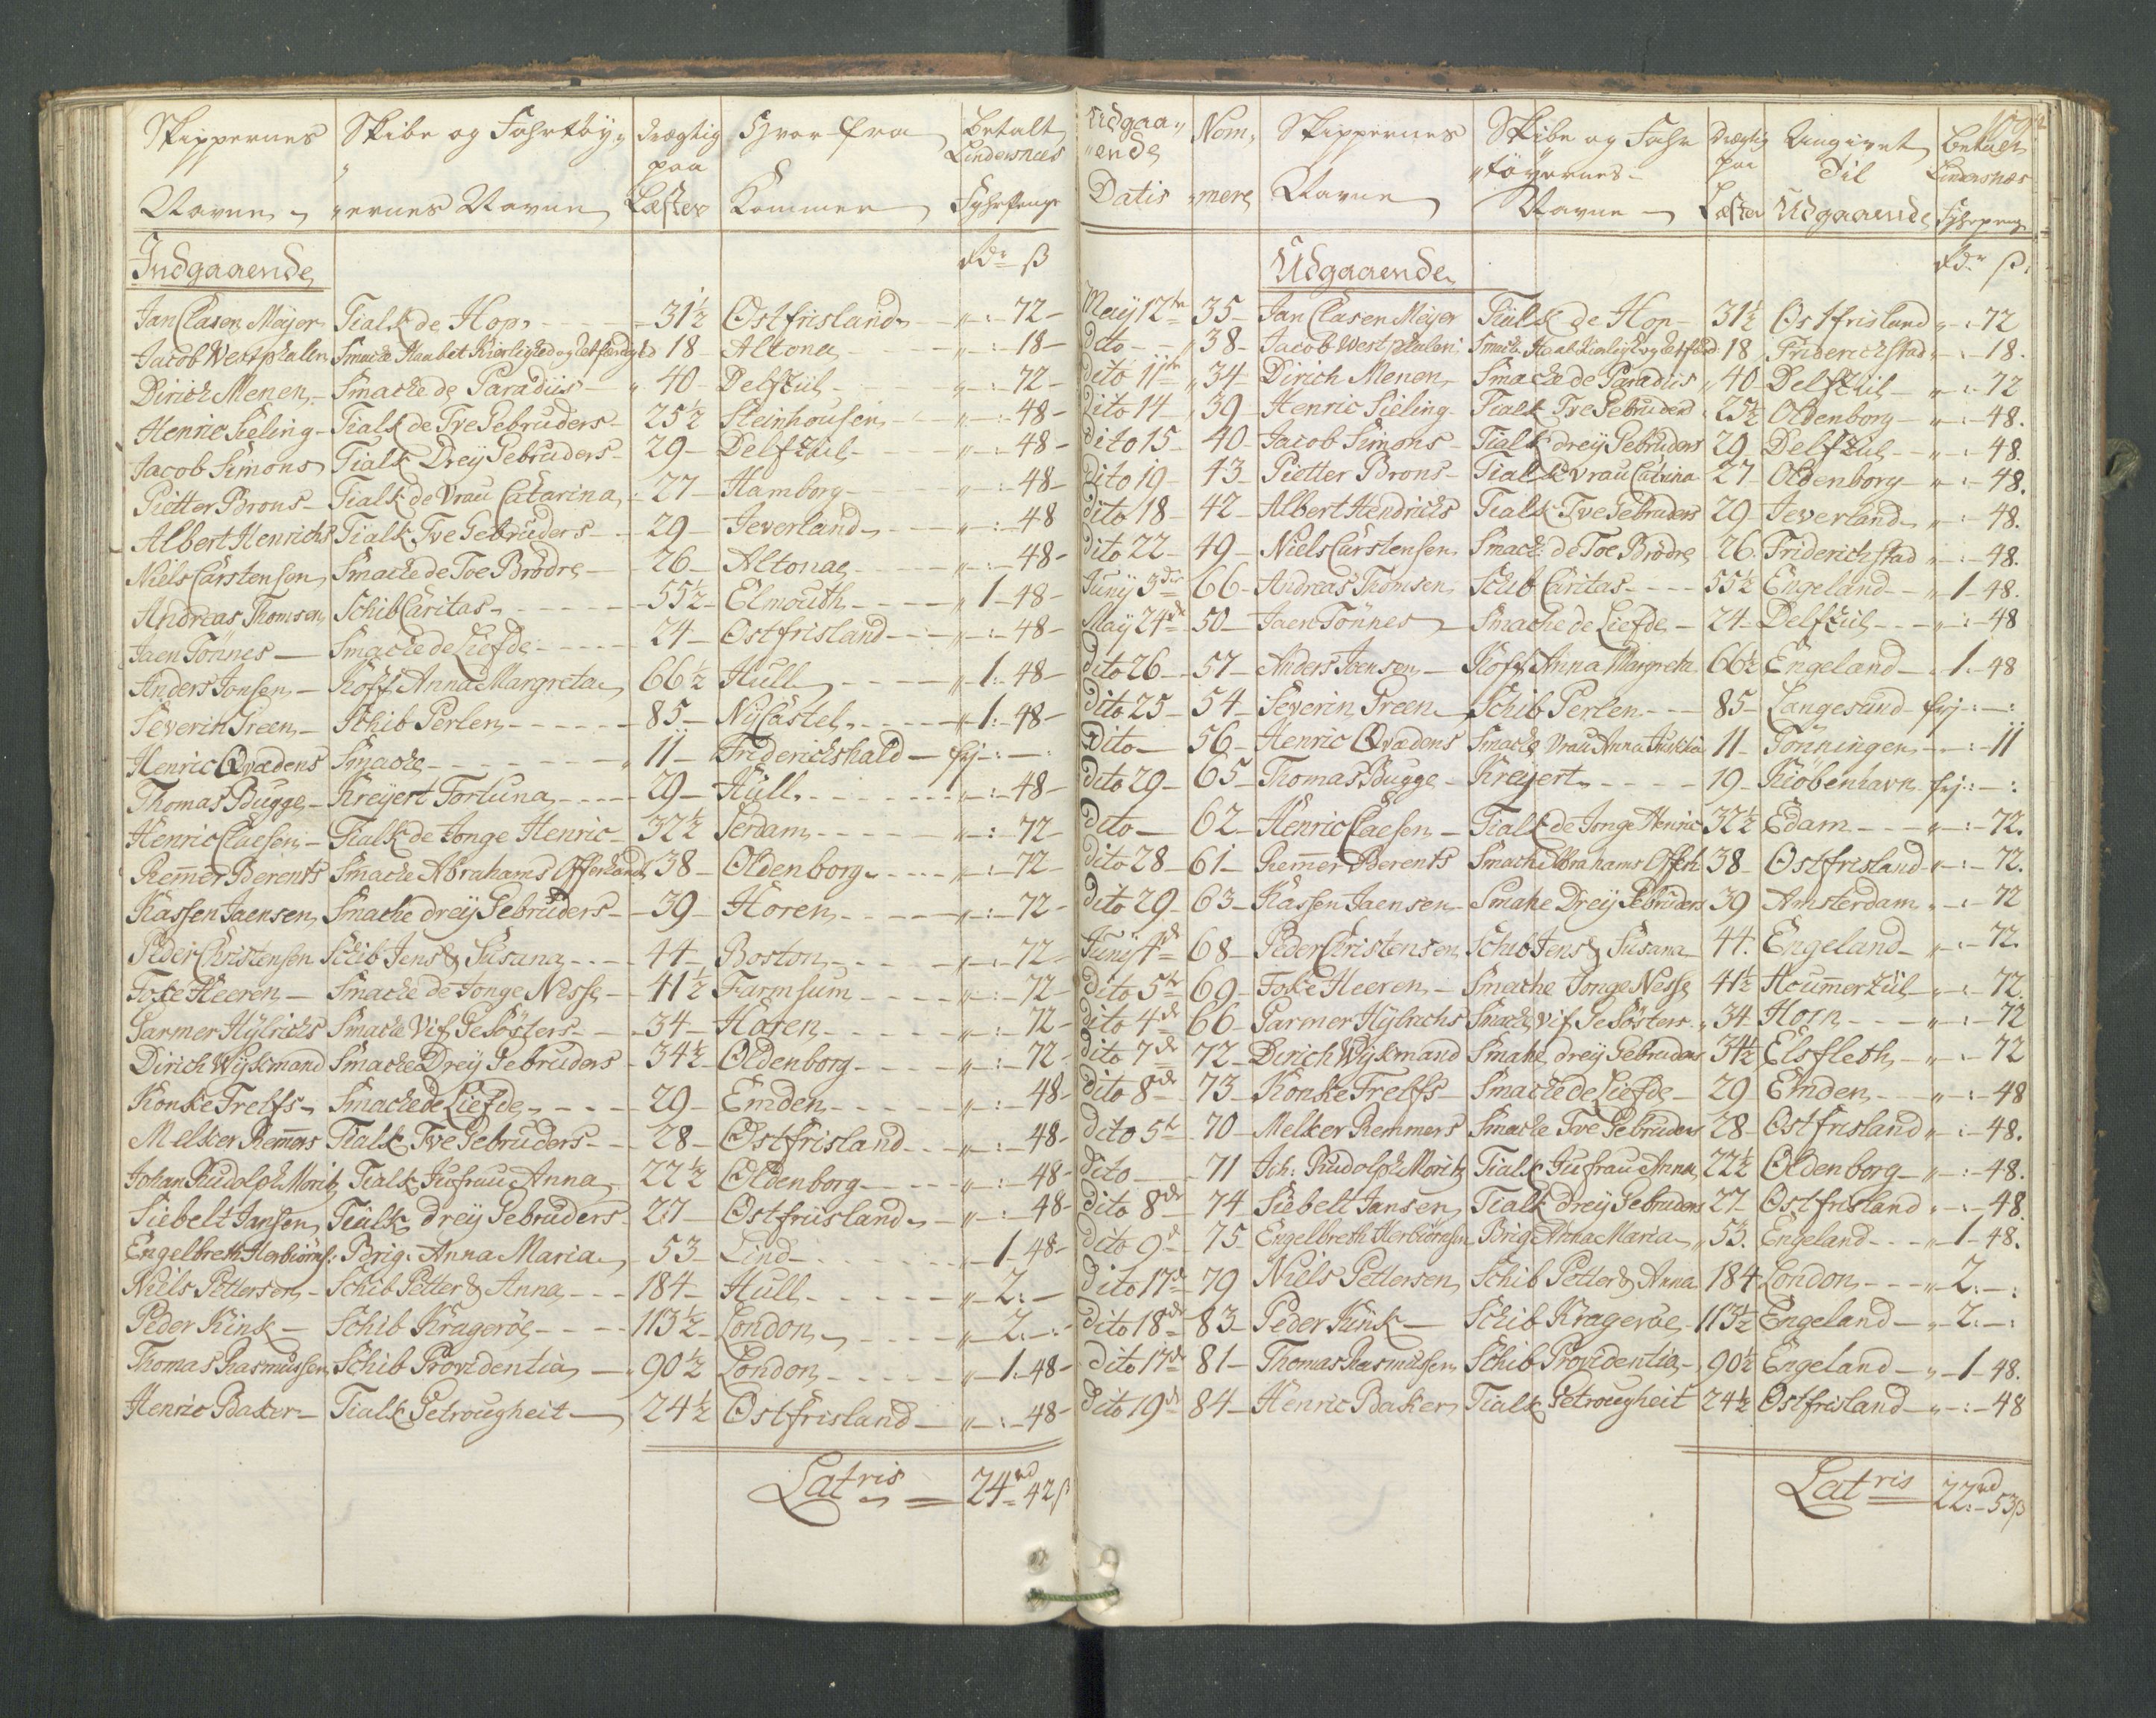 Skippernes Skibe og Fahrtöy„ drægtig Hvor fra betalt
paa Lindersnæs
Navne „ernes Navne Læster Kommer Fyhrpenge
Indgaaende Rdr ß
Jan Clasen Meyer Tialk de Hop 31½ Ostfrisland „:-72-
Jacob Westphalen Smacke Haabet Kierlighed og Retfærdighed 18 Altona „:-18-
Dirich Menen Smacke de Paradiis 40 Delfzùl „:-72-
Henric Sieling Tialk de Tve Gebruders 25½ Steinhousen „:-48-
Jacob Simons Tialk Dreÿ Gebruders 29 Delfzùl „:-48-
Pietter Brons Tialk de Vrau Catarina 27 Hamborg „:-48-
Albert Henrichs Tialk Tve Gebruders 29 Jeverland „:-48
Niels Carstensen Smacke de Toe Brödre 26 Altona „:-48-
Andreas Thomsen Schib Caritas 55½ Elmouth „1-48-
Jaen Tönnes Smacke de Liefde 24 Ostfrisland „:-48-
Anders Jonsen Koff Anna Margreta 66½ Hull „1:-48-
Severin Preen Schib Perlen 85 Nÿ Castel „1:-48-
Henric Qvædens Smacke 11 Friderichshald frj-:-:
Thomas Bugge Kreÿert Fortuna 29 Hull „:-48-
Henric Claesen Tialk de Jonge Henric 32½ Serdam „:-72-
Remmer Berents Smacke Abrahams Offerhand 38 Oldenborg „:-72-
Kassen Jaensen Smacke dreÿ Gebruders 39 Horen „:-72-
Peder Christensen Schib Jens & Susana 44 Boston „:-72-
Foke Heeren Smacke de Jonge Nesse 41½ Farmsum „:-72-
Garmer Hÿlrichs Smacke Vif Ge Sösters 34 Horen „:-72-
Dirich Wÿkmand Smacke Dreÿ Gebruders 34½ Oldenborg „:-72-
Konke Frelfs Smacke de Liefde 29 Emden „:-48-
Melker Remmers Tialk Tve Gebruders 28 Ostfrisland „:-48-
Johan Rudolph Moritz Tialk Jufrau Anna 22½ Oldenborg „:-48-
Siebelt Jansen Tialk dreÿ Gebruders 27 Ostfriisland „:-48-
Engelbreth Herbiörns: Brig: Anna Maria 53 Lind „1-48-
Niels Pettersen Schib Petter & Anna 184 Hull „2:-
Peder Kink Schib Krageröe 113½ London „2:-:-
Thomas Rasmussen Schib Providentia 90½ London „1:48-
Henric Baker Tialk Getrougheit 24½ Ostfrisland „:-48-
Latris 24rd 42ß
Udgaa„ Nom„ Skippernes Skibe og Fahr Drægtig Angivet betalt
„ende „töyernes paa Til Lindersnæs
Datis „mere Navne Navne Læster Udgaaende Fyhrpenge
Udgaaende Rdr ß:
Maÿ 12te 35 Jan Clasen Meÿer Tialk de Hop 31½ Ostfrisland „:-72
Dito „38 Jacob Westphalen Smacke Haab Kierligh og Retfærd 18 Friderichstad „:-18.
Dito 11te „34 Dirich Menen Smacke de Paradiis 40 Delfzùl „:-72
Dito 14 „39 Henric Sieling Tialk Tve Gebruders 25½ Oldenborg „:-48.
Dito 15 40 Jacob Simons Tialk dreÿ Gebruders 29 Delfzùl „:-48.
Dito 19 43 Pietter Brons Tialk de Vrau Catrina 27 Oldenborg „:-48.
Dito 18 42 Albert Hendrichs Tialk Tve Gebruders 29 Jeverland „:-48.
Dito 22 49 Niels Carstensen Smack: de Toe Brödre 26 Friderichstad „:-48.
Junÿ 3die 66 Andreas Thomsen Schib Caritas 55½ Engeland „1-48.
Maÿ 24de 50 Jaen Tönnes Smacke de Liefde 24 Delfzùl „:-48
Dito 26 57 Anders Joensen Koff Anna Margreta 66½ Engeland „1-48
Dito 25 54 Severin Preen Schib Perlen 85 Langesund frj-:-:
Dito 56 Henric Qvædens Smacke Vrau Anna 11 Tönningen -:-11
Dito 29 65 Thomas Bugge Kreÿert 19 Kiöbenhavn frj:-:
Dito 62 Henric Claesen Tialk de Jonge Henric 32½ Edam „:-72.
Dito 28 61 Remmer Berents Smacke Abrahams Offerh 38 Ostfrisland „:-72.
Dito 29 63 Kassen Jaensen Smake Dreÿ Gebruders 39 Amsterdam „:-72
Junÿ 4de 68 Peder Christensen Schib Jens & Susana 44. Engeland „:-72.
Dito 5te 69 Foke Heeren Smacke Jonge Nesse 41½ Houmerzùl „:-72.
Dito 4de 66 Garmer Hÿlrichs Smack Vif Ge Sösters 34 Horn „:-72
Dito 7de 72 Dirich Wÿkmand Smake dreÿ Gebruders 34½ Elsfleth „:-72
Dito 8de 73 Konke Frelfs Smacke de Liefde 29 Emden „:-48
Dito 5te 70 Melker Remmers Smacke Tve Gebruders 28 Ostfrisland „:-48.
Dito 71 Joh: Rudolph Moritz Tialk Jufrau Anna 22½ Oldenborg „:-48.
Dito 8de 74 Siebelt Jansen Tialk dreÿ Gebruders 27 Ostfrisland „:-48.
Dito 9d 75 Engelbreth Herbiörnsen Brig: Anna Maria 53. Engeland „1-48.
Dito 17de 79 Niels Pettersen Schib Petter & Anna 184 London „2:-:
Dito 18de 83 Peder Kink Schib Krageröe 113½ Engeland „2:-:
Dito 17de 81 Thomas Rasmussen Schib Providentia 90½ Engeland „1-48.
Dito 19de 84 Henric Baker Tialk Getrougheit 24½ Ostfrisland „:-48
Latris 22:rd 53ß